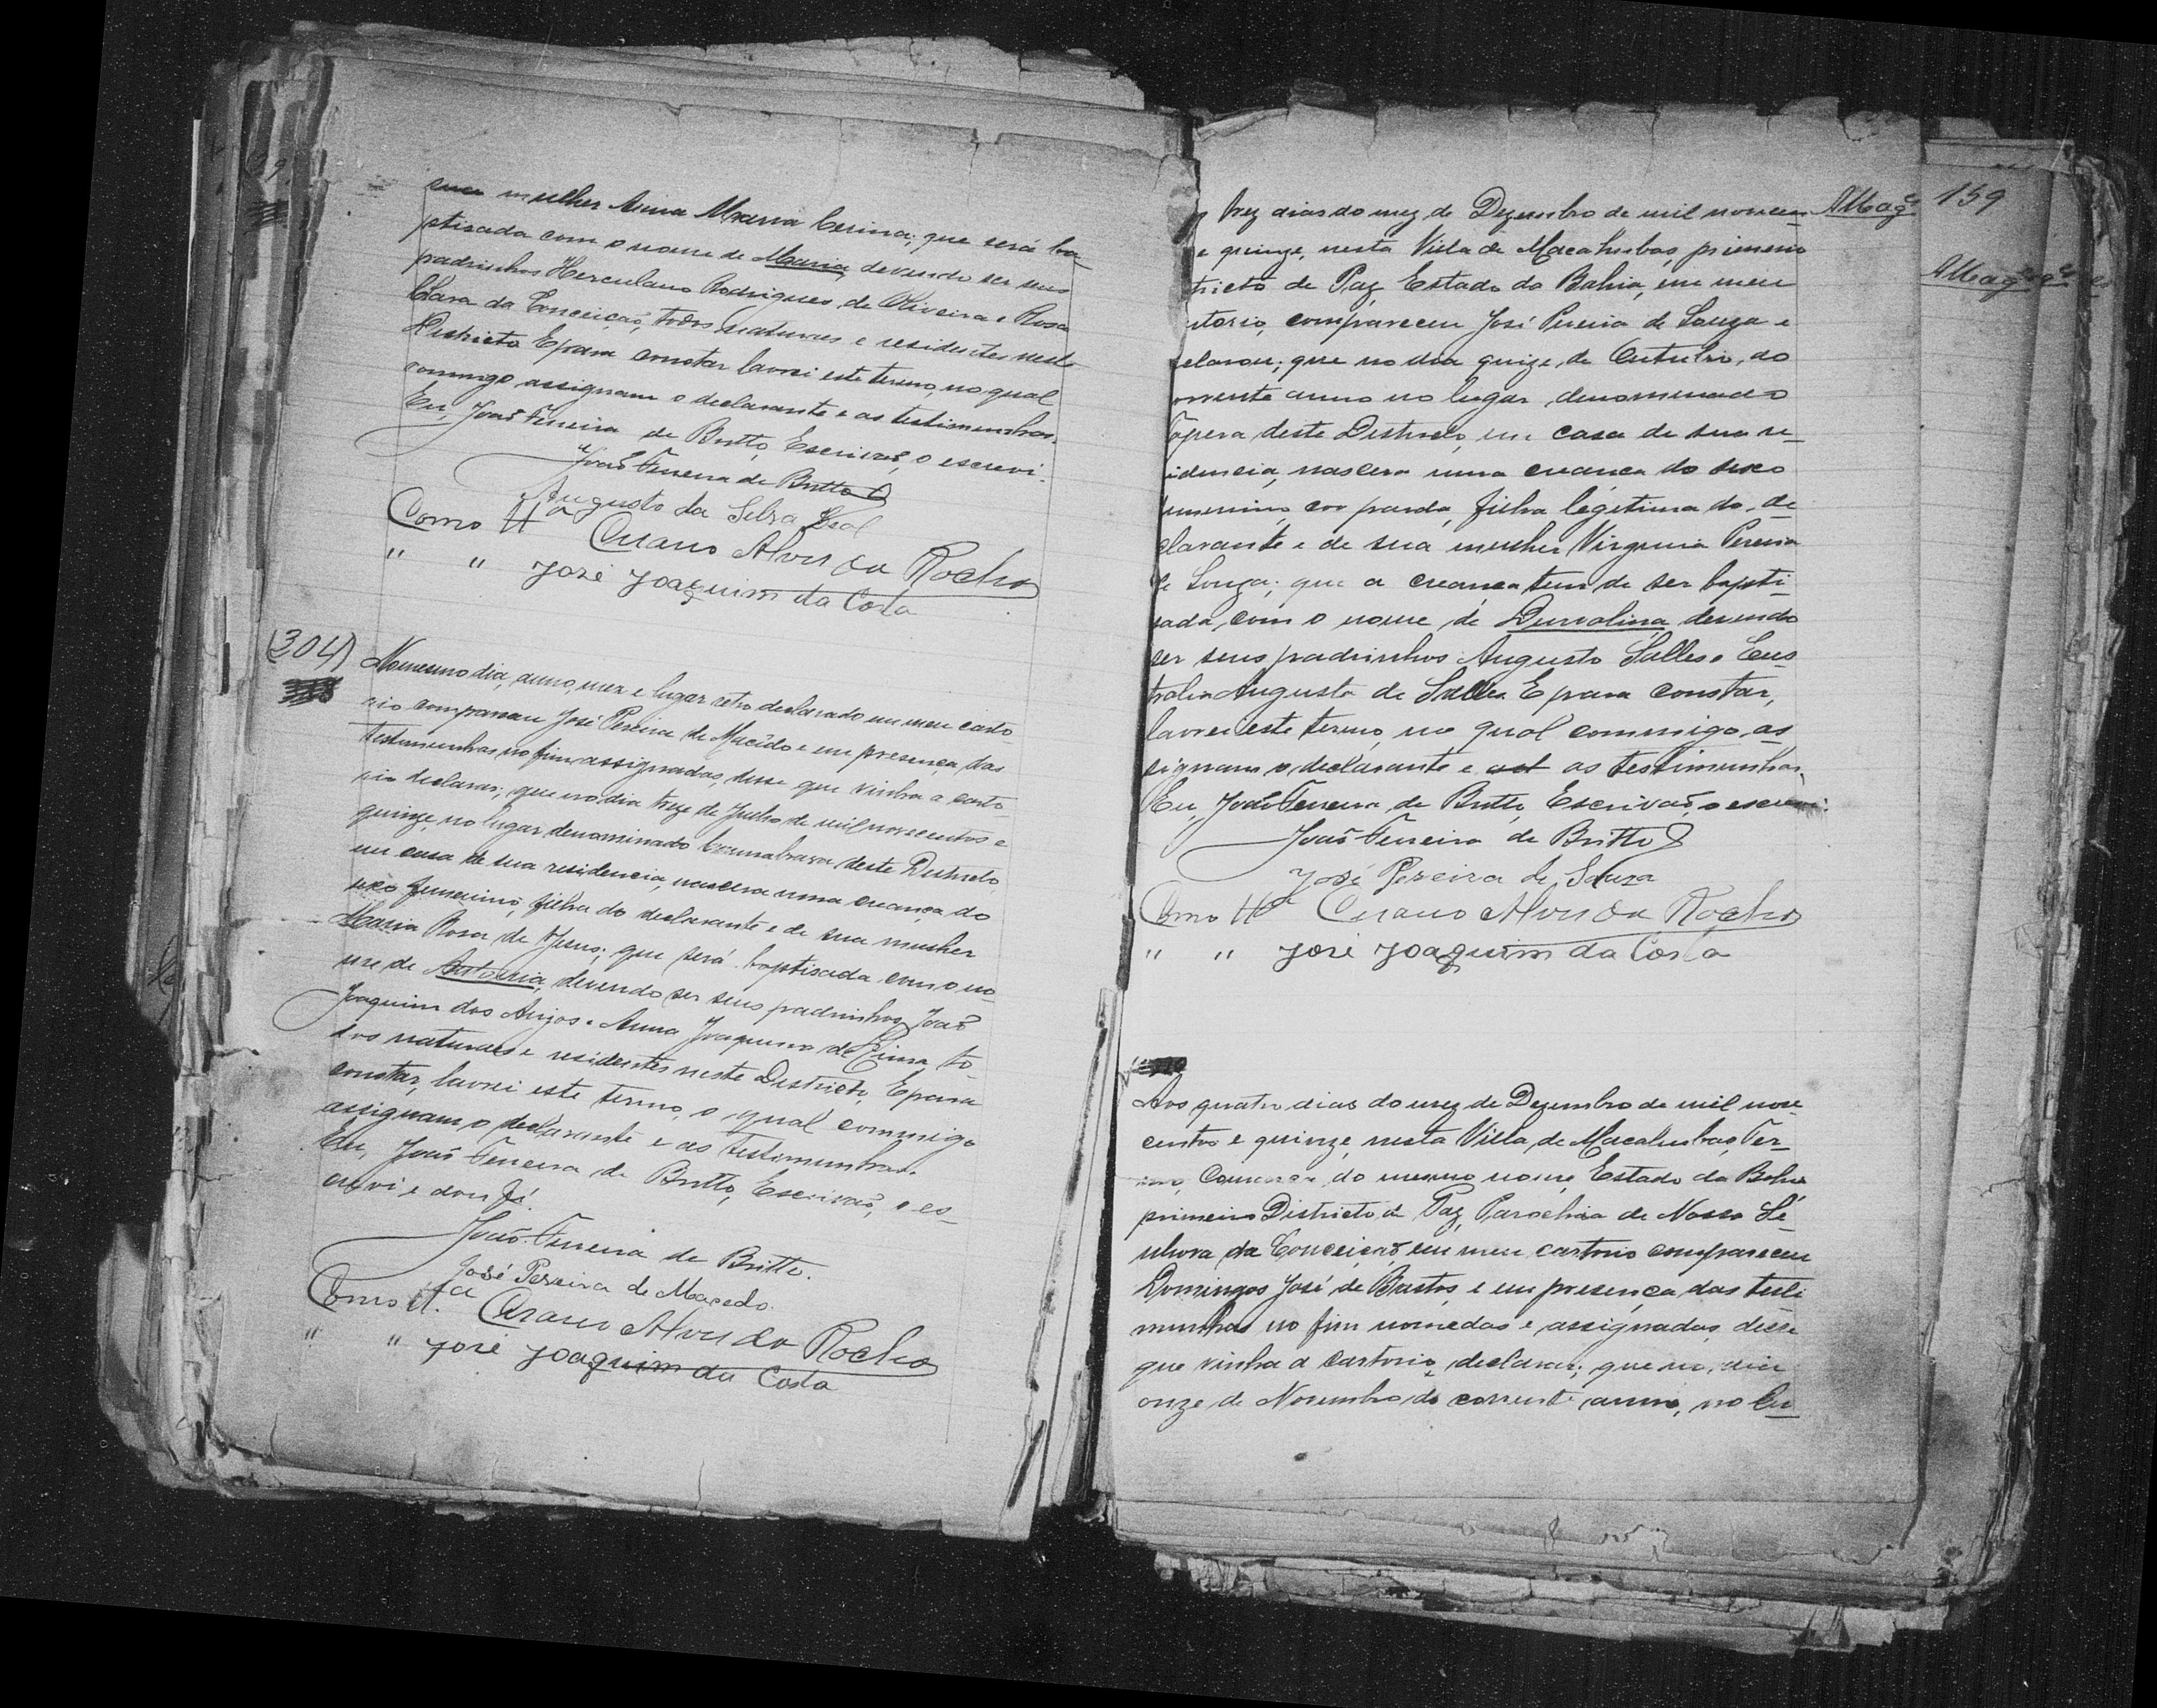 sua mulher Anna Maria Cerina; que será ba-
ptisada com o nome de Maria, devendo ser seus
padrinhos Herculano Rodrigues de Oliveira e Rosa
Clara da Conceição, todos naturaes e residentes neste
Districto E para constar lavrei este termo, no qual
commigo assignam o declarante e as testimunhas.
Eu, João Ferreira de Britto, Escrivão, o escrevi.
João Ferreira de Britto
Augusto da Silva Leal
Como ttª Alves da Rocha
" " José Joaquim da Costa
(304)
No mesmo dia, anno, mez e lugar retro declarado em meu carto-
rio compareceu José Pereira de Macêdo e em presença das
testimunhas no fim assignadas, disse que vinha a carto-
rio declarar; que no dia treze de Julho de mil novecentos e
quinze, no lugar denominado deste Districto
em casa de sua residencia, nascera uma creança do
sexo femenino, filha do declarante e de sua mulher
Maria Rosa de Jesus; que será baptisada com o no-
me de Antonia, devendo ser seus padrinhos João
Joaquim dos Anjos e Anna Joaquina de Lima, to-
dos naturaes e residentes neste Districto. E para
constar, lavrei este termo, o qual commigo
assignam o declarante e as testimunhas.
Eu, João Ferreira de Britto, Escrivão, o es-
crevi e dou fé.
João Ferreira de Britto.
José Pereira de Macedo.
Como tt.ª Alves da Rocha
" " José Joaquim da Costa
159
trez dias do mez de Dezembro de mil novecen-
e quinze, nesta Villa de Macahubas, primeiro
tricto de Paz, Estado da Bahia, em meu
rtorio, compareceu José Pereira de Souza e
clarou; que no dia quize de Outubro, do
orrente anno no lugar denominado
apera deste Districto, em casa de sua re-
idencia, nascera uma creança do sexo
femenino, cor parda, filha legitima do de-
clarante e de sua mulher Virginia Pereira
de Souza; que a creança tem de ser bapti-
sada, com o nome de Durvalina devendo
ser seus padrinhos Augusto Salles e Eus-
trolia Augusta de Salles E para constar,
lavrei este termo, no qual commigo as-
signam o declarante e as testimunhas.
Eu, João Ferreira de Britto, Escrivão, o escrevi.
João Ferreira de Britto
José Pereira de Souza
Como ttª Alves da Rocha
" " José Joaquim da Costa
Aos quatro dias do mez de Dezembro de mil nove-
centos e quinze, nesta Villa de Macahubas, Ter-
mo, Comarca do mesmo nome, Estado da Bahia
primeiro Districto de Paz, Parochia de Nossa Se-
nhora da Conceição, em meu cartorio compareceu
Domingos José de Bastos, e em presença das testi-
munhas no fim nomedas e assignadas, disse
que vinha a cartorio, declarar; que no dia
onze de Novembro do corrente anno, no lu-